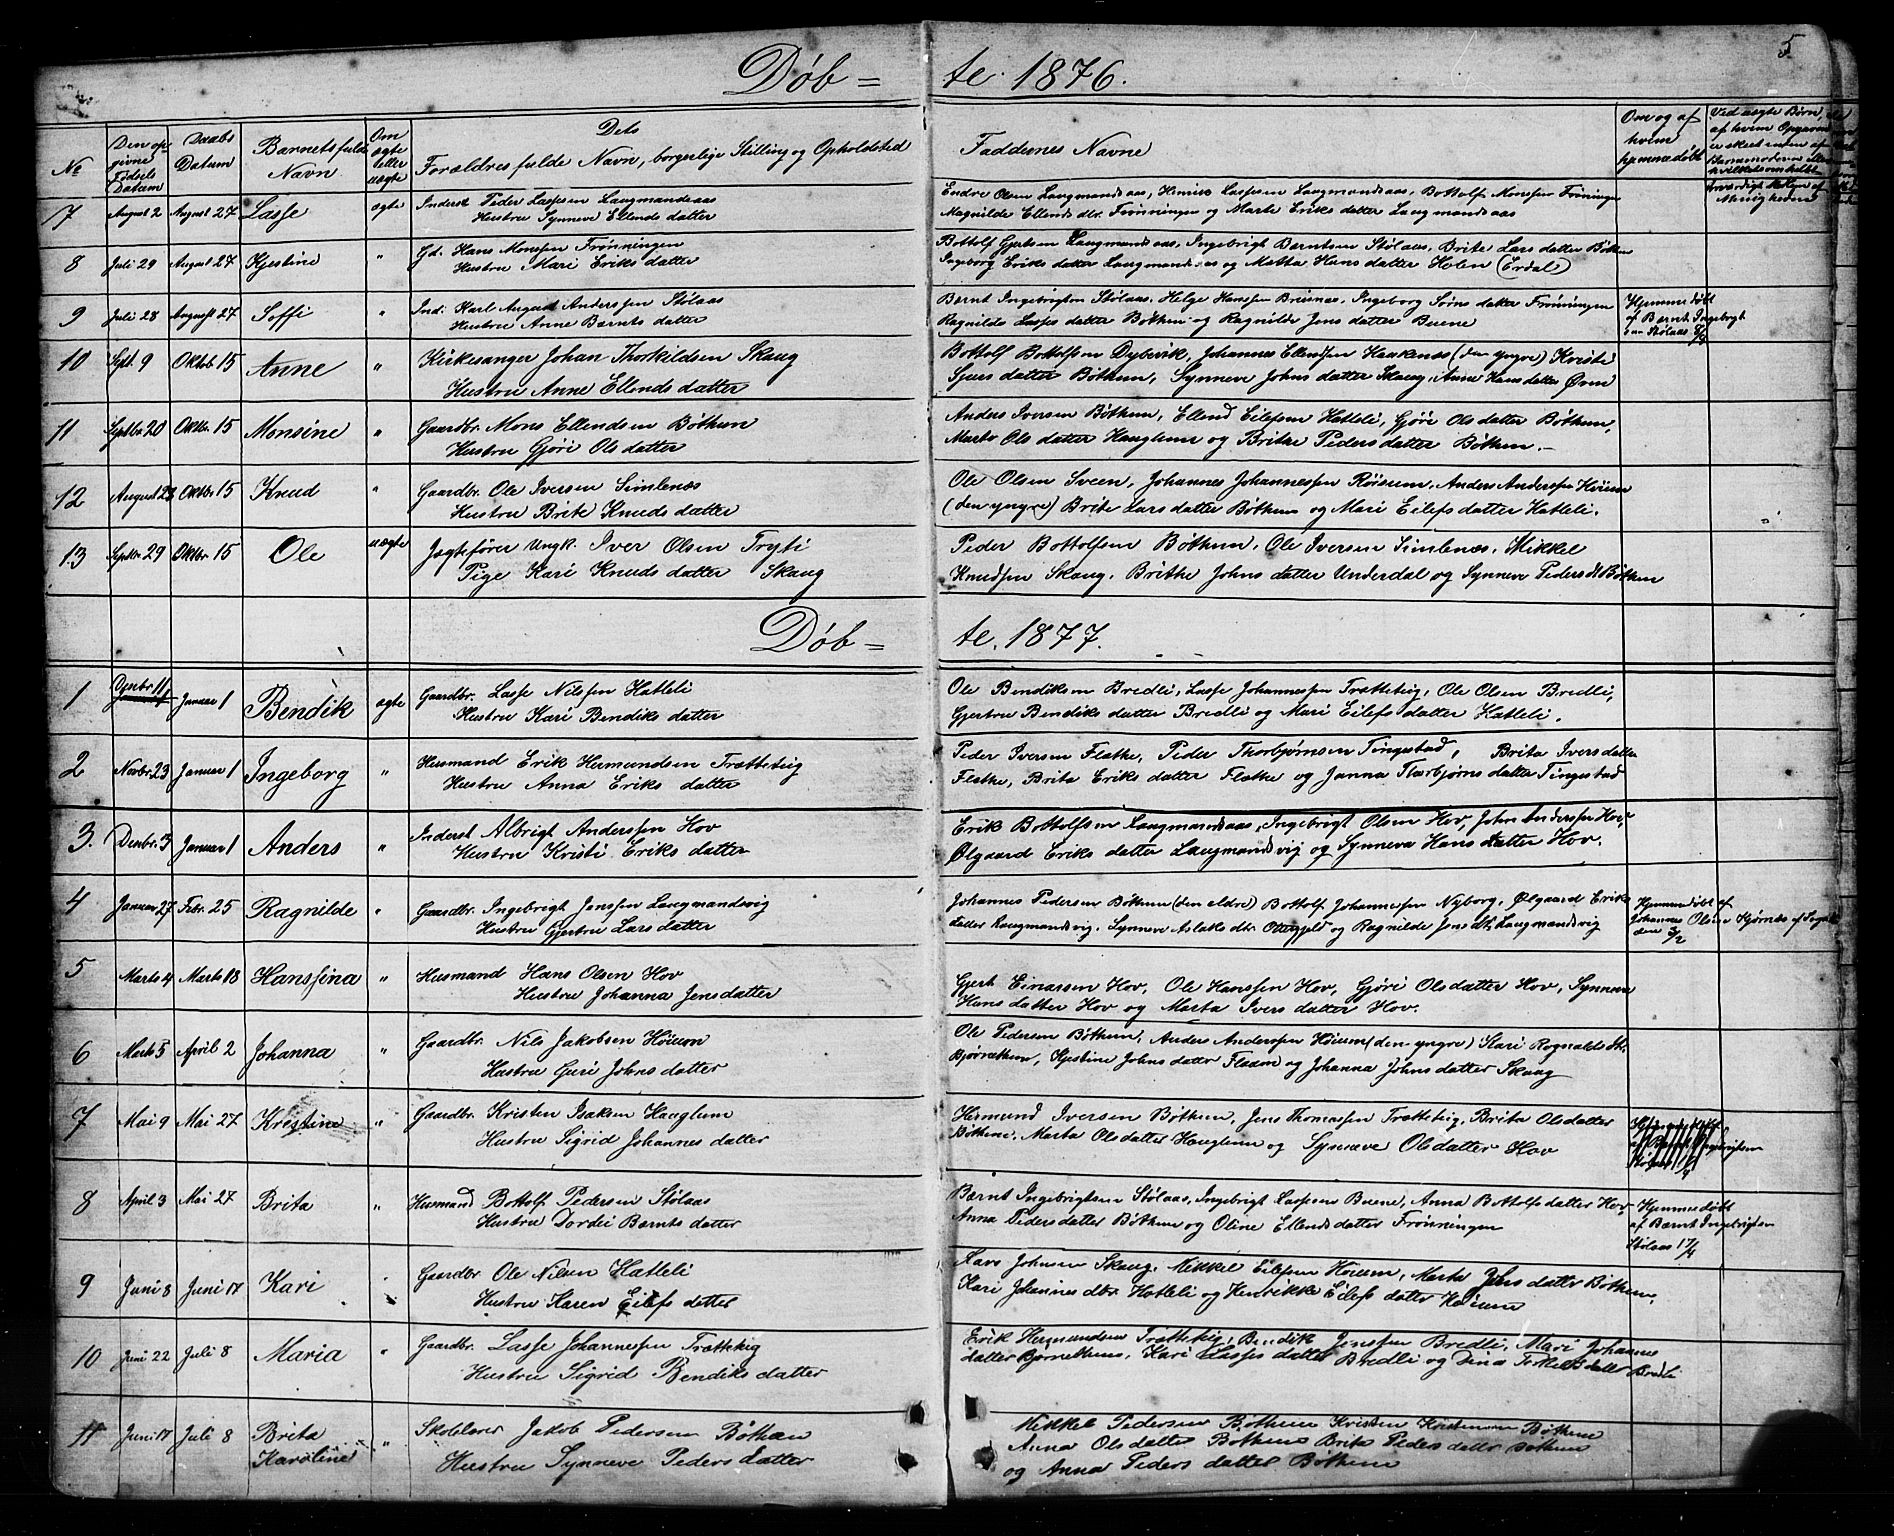 5
Døb = te. 1876.
No
Den op-
givne
Fødsels
Datum
Daabs
Datum
Barnets fulde
Navn
Om
ægte
eller
uægte
Dets
Forældres fulde Navn, borgerlige Stilling og Opholdsted
Faddernes Navne
Om og af
hvem
hjemmedøbt
Ved uægte Børn,
7 August 2 August 27 Lasse ægte Inderst Peder Lassesen Laugmandsaas
Hustru Synneve Ellends datter
Endre Olsen Laugmandsaas, Henrik Lassesen Laugmandsaas, Bottolf Monssen Frønningen
Magnilde Ellends dtr. Frønningen og Marte Eriks datter Laugmandsaas
8 Juli 29 August 27 Kjestine " Gd. Hans Monssen Frønningen
Hustru Mari Eriks datter
Bottolf Gjertsen Laugmandsaas, Ingebrigt Berntsen Stølaas, Brite Lars datter Bøthun
Ingeborg Eriks datter Laugmandsaas og Matta Hans datter Holen (Erdal)
9 Juli 28 August 27 Soffi " Ind. Karl August Anderssen Stølaas
Hustru Anne Bernts datter
Bernt Ingebrigtsen Stølaas, Helge Hanssen Buenæs, Ingeborg Sørns datter Frønningen
Ragnilde Lasses datter Bøthun og Ragnilde Jens datter Buene
Hjemmedøbt
af Bernt Ingebrigt
sen Stølaas
10 Sept. 9 Oktob 15 Anne " Kirkesanger Johan Thorkildsen Skaug
Hustru Anne Ellends datter
Bottolf Bottolfsen Dybvik, Johannes Ellendsen Haukenæs (den yngre) Kristi
Sjurs datter Bøthun, Synneve Johns datter Skaug, Anne Hans datter Øvni
11 Septbr 20 Oktbr. 15 Monsine " Gaardbr. Mons Ellendsen Bøthun
Hustru Gjøri Ols datter
Anders Iversen Bøthun, Ellend Eilefsen Hatleli, Gjøri Ols datter Bøthun,
Marta Ols datter Hauglum og Brithe Peders datter Bøthun.
12 August 28 Oktbr 15 Knud " Gaardbr. Ole Iversen Simlenæs
Hustru Brite Knuds datter
Ole Olsen Sveen, Johannes Johannessen Røisum, Anders Anderssen Høium
(den yngre) Brite Lars datter Bøthun og Mari Eilefs datter Hatleli.
13 Septbr 29 Oktbr. 15 Ole uægte Jægtefører Ungk. Iver Olsen Tryti
Pige Kari Knuds datter Skaug
Peder Bottolfsen Bøthun, Ole Iversen Simlenæs, Mikkel
Knudsen Skaug, Brithe Johns datter Underdal og Synneve Peders dt Bøthun
Døb = te. 1877.
1 Dcsbr 11 Januar 1 Bendik ægte Gaardbr. Lasse Nilssen Hatleli
Hustru Kari Bendiks datter
Ole Bendiksen Bredli, Lasse Johannessen Trætteteig, Ole Olsen Bredli,
Gjertru Bendiks datter Bredli og Mari Eilefs datter Hatleli.
2 Novbr. 23 Januar 1 Ingeborg " Husmand Erik Hermundsen Trætteteig
Hustru Anna Eriks datter
Peder Iversen Flathe, Peder Thorbjørnsen Tingestad, Brita Ivers datter
Flathe, Brita Eriks datter Flathe og Janna Thorbjørns datter Tingestad
3. Desbr. 3 Januar 1 Anders " Inderst Albrigt Anderssen Hov
Hustru Kristi Eriks datter
Erik Bottolfsen Laugmandsaas, Ingebrigt Olsen Hov, John Anderssen Hov,
Ølgaard Eriks datter Laugmandsvig og Synneva Hans datter Hov.
4 Januar 27 Febr. 25 Ragnilde " Gaardbr. Ingebrigt Janssen Laugmandsvig
Hustru Gjertru Lars datter
Johannes Pedersen Bøthun (den eldre) Bottolf Johannessen Nyborg, Ølgaard Eriks
datter Laugmandsvig, Synneve Aslaks dtr. Ottergjeld og Ragnilde Jens dtr. Laugmandsvig
Hjemmedøbt af
Johannes Olsen Hjørnes af Sogndal
den 3/2
5 Marts 4 Marts 18 Hanssina " Husmand Hans Olsen Hov
Hustru Johanna Jensdatter
Gjert Einarsen Hov, Ole Hanssen Hov, Gjøri Olsdatter Hov, Synneve
Hans datter Hov og Marta Ivers datter Hov.
6 Marts 5 April 2 Johanna " Gaardbr. Nils Jakobsen Høium
Hustru Guri Johns datter
Ole Pedersen Bøthun, Anders Anderssen Høium (den yngre) Kari Rognalds dt.
Bjørnethun, Kjestine Johns datter Flaam og Johanna Johns datter Skaug
7 Mai 9 Mai 27 Krestine " Gaardbr. Kristen Isaksen Hauglum
Hustru Sigrid Johannes datter
Hermund Iversen Bøthun, Jens Thomassen Trætteteig, Brita Olsdatter
Bøthun, Marta Olsdatter Hauglum og Synneve Olsdatter Hov
8 April 3 Mai 27 Brita " Husmand Bottolf Pedersen Stølaas
Hustru Dordei Bernts datter
Bernt Ingebrigtsen Stølaas, Ingebrigt Lassesen Buene, Anna Bottolfsdatter Hov,
Anna Peders datter Bøthun og Oline Ellends datter Frønningen
Hjemmedøbt
af Bernt Ingebrigtsen
Stølaas 17/4
9 Juni 8 Juni 17 Kari " Gaardbr Ole Nilsen Hatleli
Hustru Karen Eilefs datter
Lars Johnsen Skaug, Mikkel Eilefsen Høium, Marta Johns datter Bøthun,
Kari Johannes dtr. Hatleli og Henrikke Eilefs datter Høium
10 Juni 22 Juli 8 Maria " Gaardbr. Lasse Johannessen Trætteteig
Hustru Sigrid Bendiks datter
Erik Hermundsen Trætteteig, Bendik Jenssen Bredli, Mari Johannes
datter Bjørnethun, Kari Lasses datter Bredli og Dina Torkels datter Bredli
11 Juni 17 Juli 8 Brita
Karoline " Skolelærer Jakob Pedersen Bøthun
Hustru Synneve Peders datter
Mikkel Pedersen Bøthun Kristen Kristensen Bøthun
Anna Olsdatter Bøthun Brite Peders datter Bøthun
og Anna Peders datter Bøthun